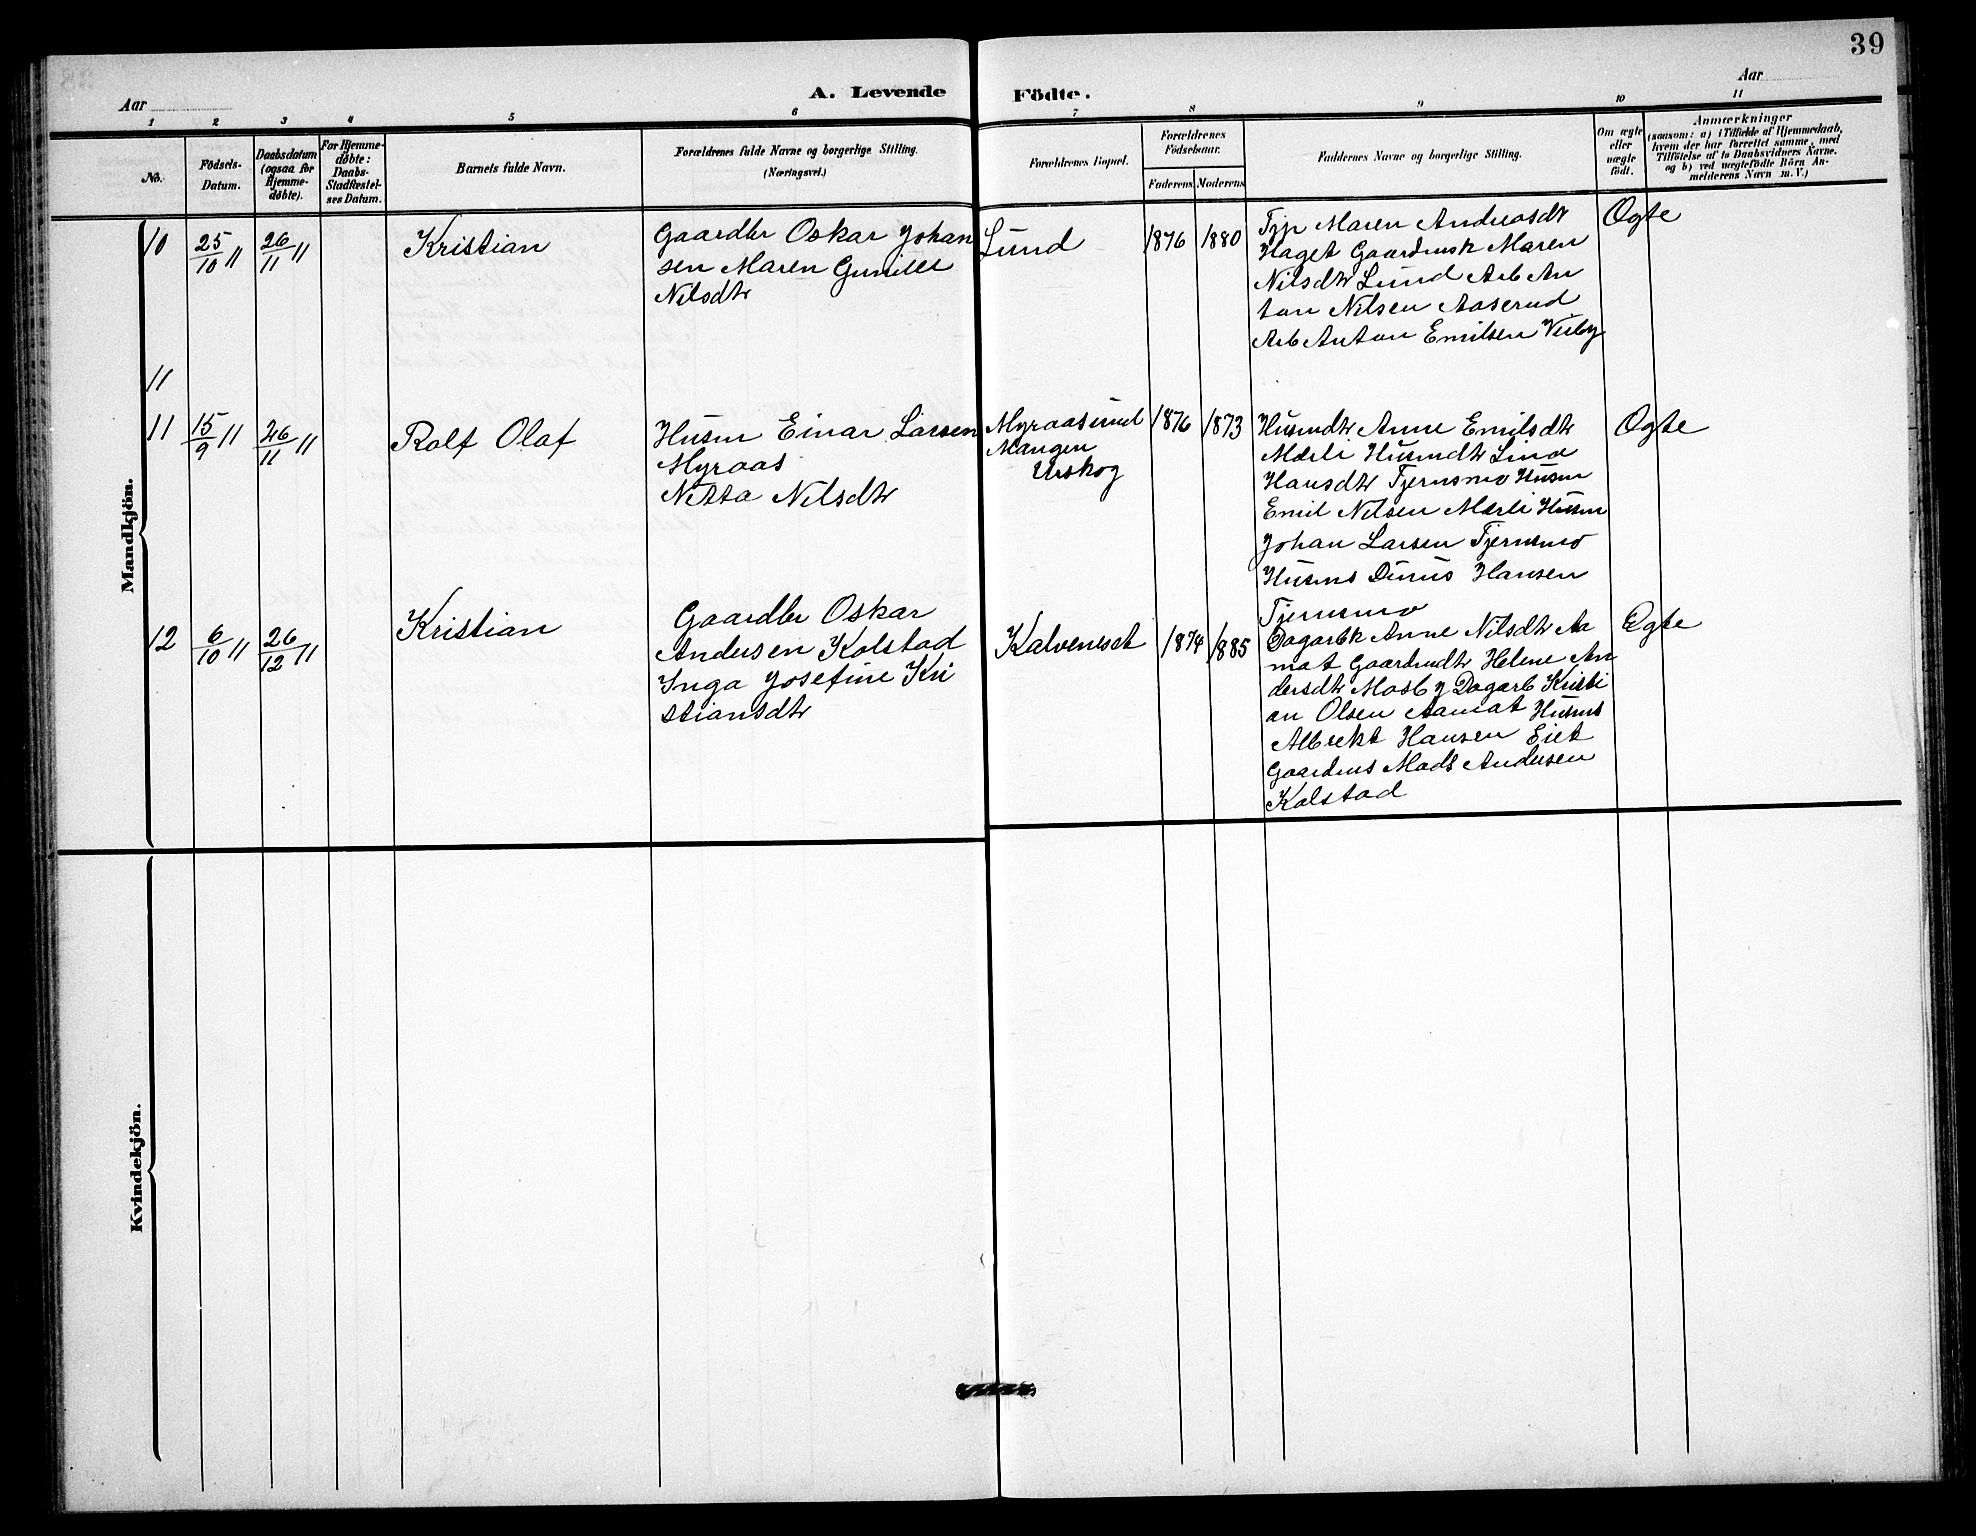 39
Aar
A. Levende Födte.
Aar
1 2 3 4 5 6 7 8 9 10 11
No.
Födsels-
Datum.
Daabsdatum
(ogsaa for
Hjemme-
døbte).
For Hjemme-
døbte:
Daabs-
Stadfæstel-
ses Datum.
Barnets fulde Navn.
Forældrenes fulde Navne og borgerlige Stilling.
(Næringsvei.)
Forældrenes Bopæl.
Forældrenes
Födselsaar.
Faderens Moderens
Faddernes Navne og borgerlige Stilling.
Om ægte
eller
uægte
født.
Anmærkninger
(saasom: a) i Tilfælde af Hjemmedaab,
hvem der har forrettet samme, med
Tilføielse af to Daabsvidners Navne.
og b) ved uægtefødte Börn An-
melderens Navn m. V.)
Mandkjön.
10 25/10 11 26/11 11
Kristian
Gaardbr Oskar Johan
sen Maren Gunille
Nilsdtr
Lund
1876 1880
Tjp Maren Andreasdt
Haget Gaardmsk Maren
Nilsdtr Lund Arb An
ton Nilsen Aaserud
Arb Anton Emilsen Visby
Ogte
11
11 15/9 11 26/11 11
Rolf Olaf
Husm Einar Larsen
Myraas
Netta Nilsdtr
Myraasund
Mangen
Urskog
1876 1873
Husmdtr Anne Emilsdtr
Mærli Husmdtr Lina
Hansdtr Tjernsmo Husm
Emil Nilsen Mærli Husm
Johan Larsen Tjernsmo
Husms Dinus Hansen
Tjernsmo
Ogte
12 6/10 11 26/12 11
Kristian
Gaardbr Oskar
Andersen Kolstad
Inga Josefine Kri
stiansdtr
Kalvenset
1874 1885
Dagarbk Anne Nilsdtr Aa
mot Gaardmdtr Helene An
dersdtr Mosby Dagarb Kristi
an Olsen Aamot Husms
Albrekt Hansen Eiet
Gaardms Mads Andersen
Kolstad
Ogte
Kvindekjön.